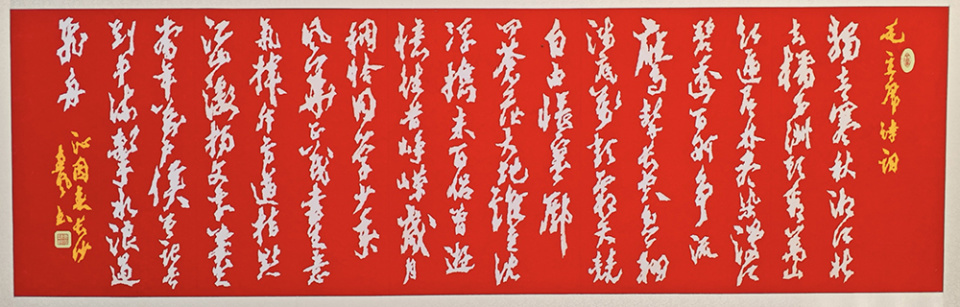 毛主席诗词
獨立寒秋湘江北
去橘子洲頭看萬山
红遍層林尽染漫江
碧透百舸争流
鹰擊长空鱼翔
浅底万類霜天競
自由悵寥廓
問蒼茫大地誰主沉
浮攜来百侣曾遊
憶往昔峥嵘歲月
稠恰同学少年
风華正茂書生意
氣揮斥方遒指點
江山激揚文字粪土
當年万户侯曾記否
到中流擊水浪遏
飛舟
沁园春长沙
书